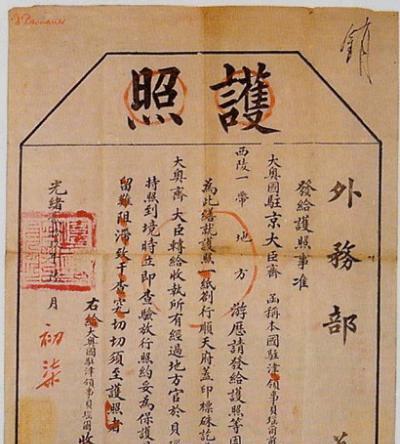 護照
外務部
發給護照事准
大奧國駐京大臣齊 函稱本國駐津領事貝瑙爾前
西陵一帶地方 游歷請發給護照等因
為此繕就護照一紙劄行順天府蓋印標硃訖
大奧齊大臣轉給收執所有經過地方官於貝瑙
持照到境時立即查驗放行照約妥為保護
留難阻滯致干查究切切須至護照者
右給大奧國駐津領事貝瑙爾收
光緒 年 月 初柒